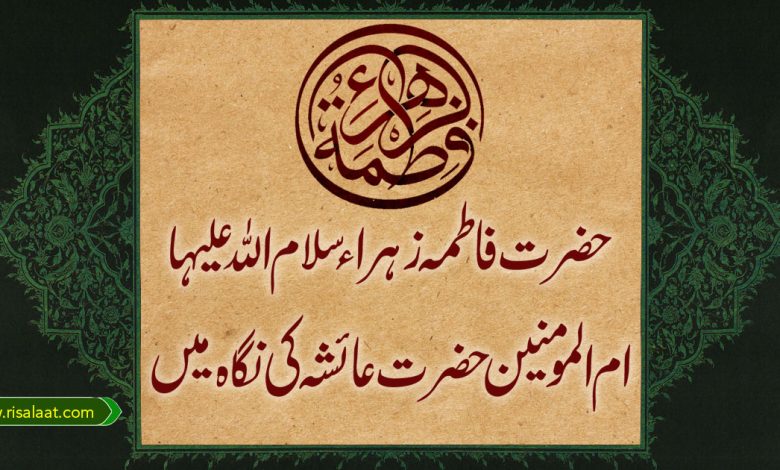 فاطمة الزهراء
حضرت فاطمہ زہراء سلام اللہ علیہا
ام المومنین حضرت عائشہ کی نگاہ میں
w.risalaat.com